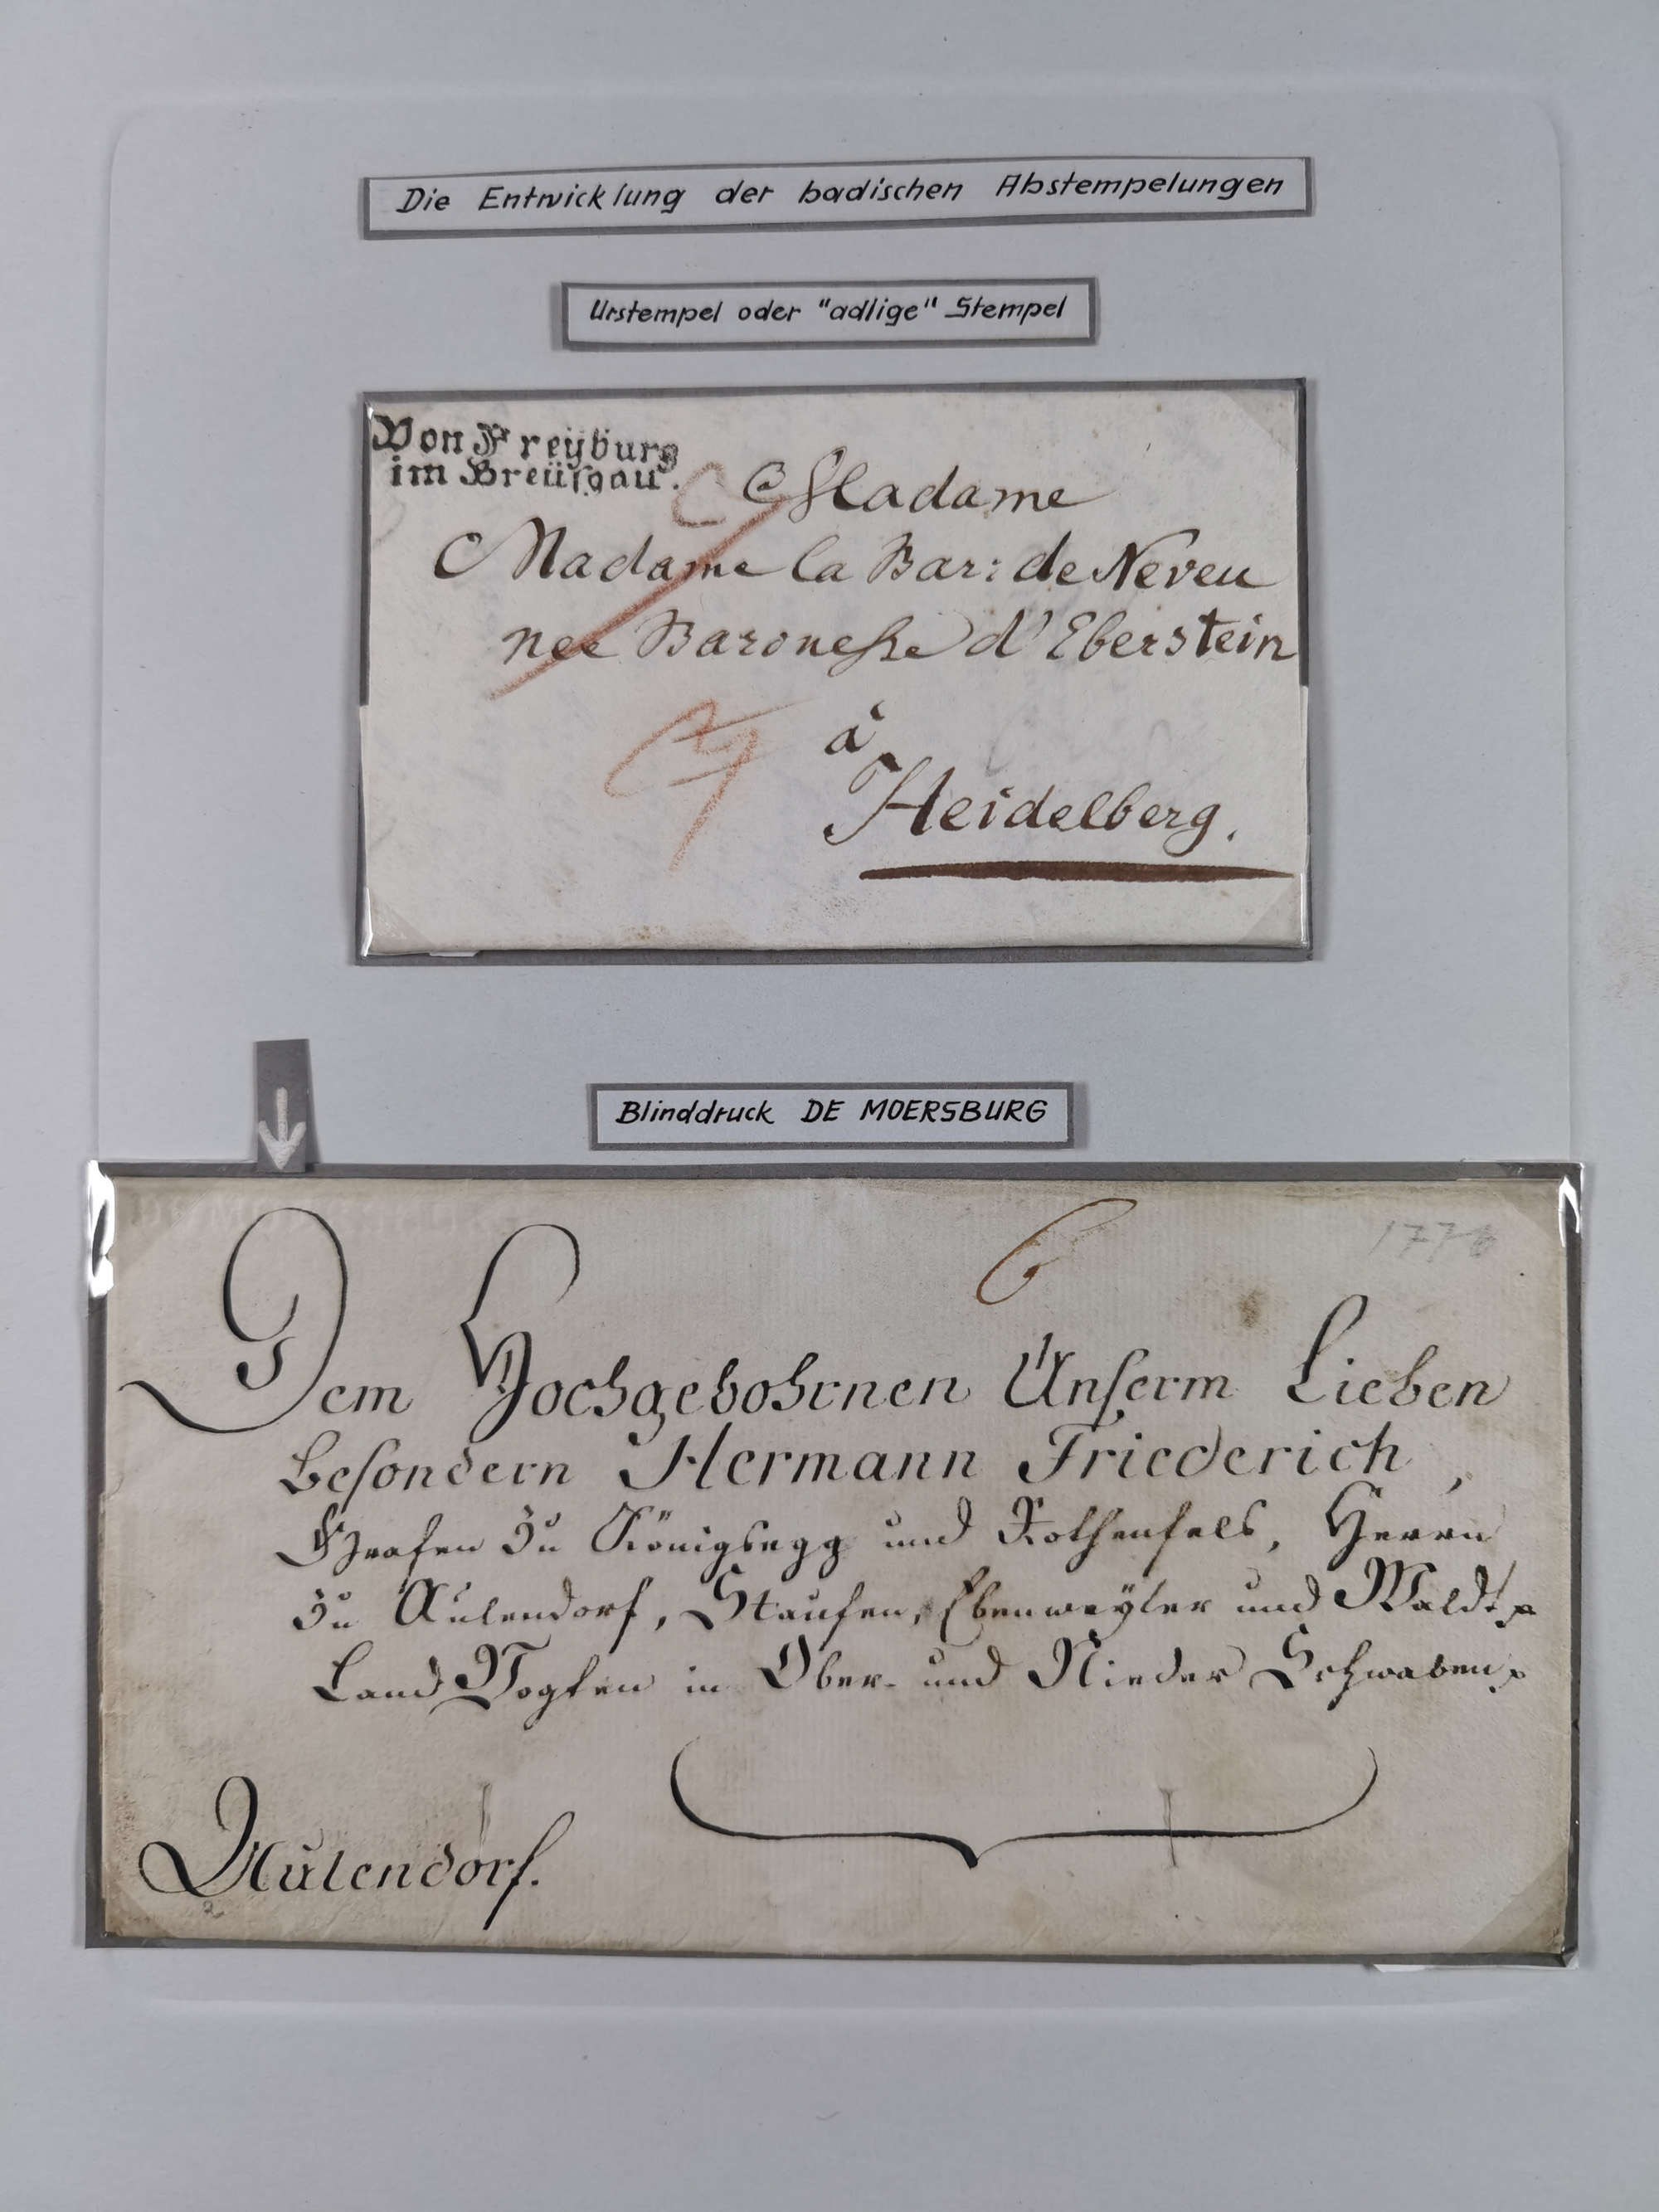 Die Entwicklung der badischen Abstempelungen
Urstempel oder "adlige" Stempel
Von Freyburg
im Breüsgau.
Madame
Madame la Bar: de Neveu
neé Baronesse d'Eberstein
à
Heidelberg.
Blinddruck DE MOERSBURG
1776
Dem Hochgebohrnen Unserm Lieben
Besondern Hermann Friederich,
Grafen zu Königsegg und Rothenfels, Herrn
zu Aulendorf, Staufen, Ebenweyler und Waldt
Land Vogten in Ober- und Nieder Schwaben
Aulendorf.